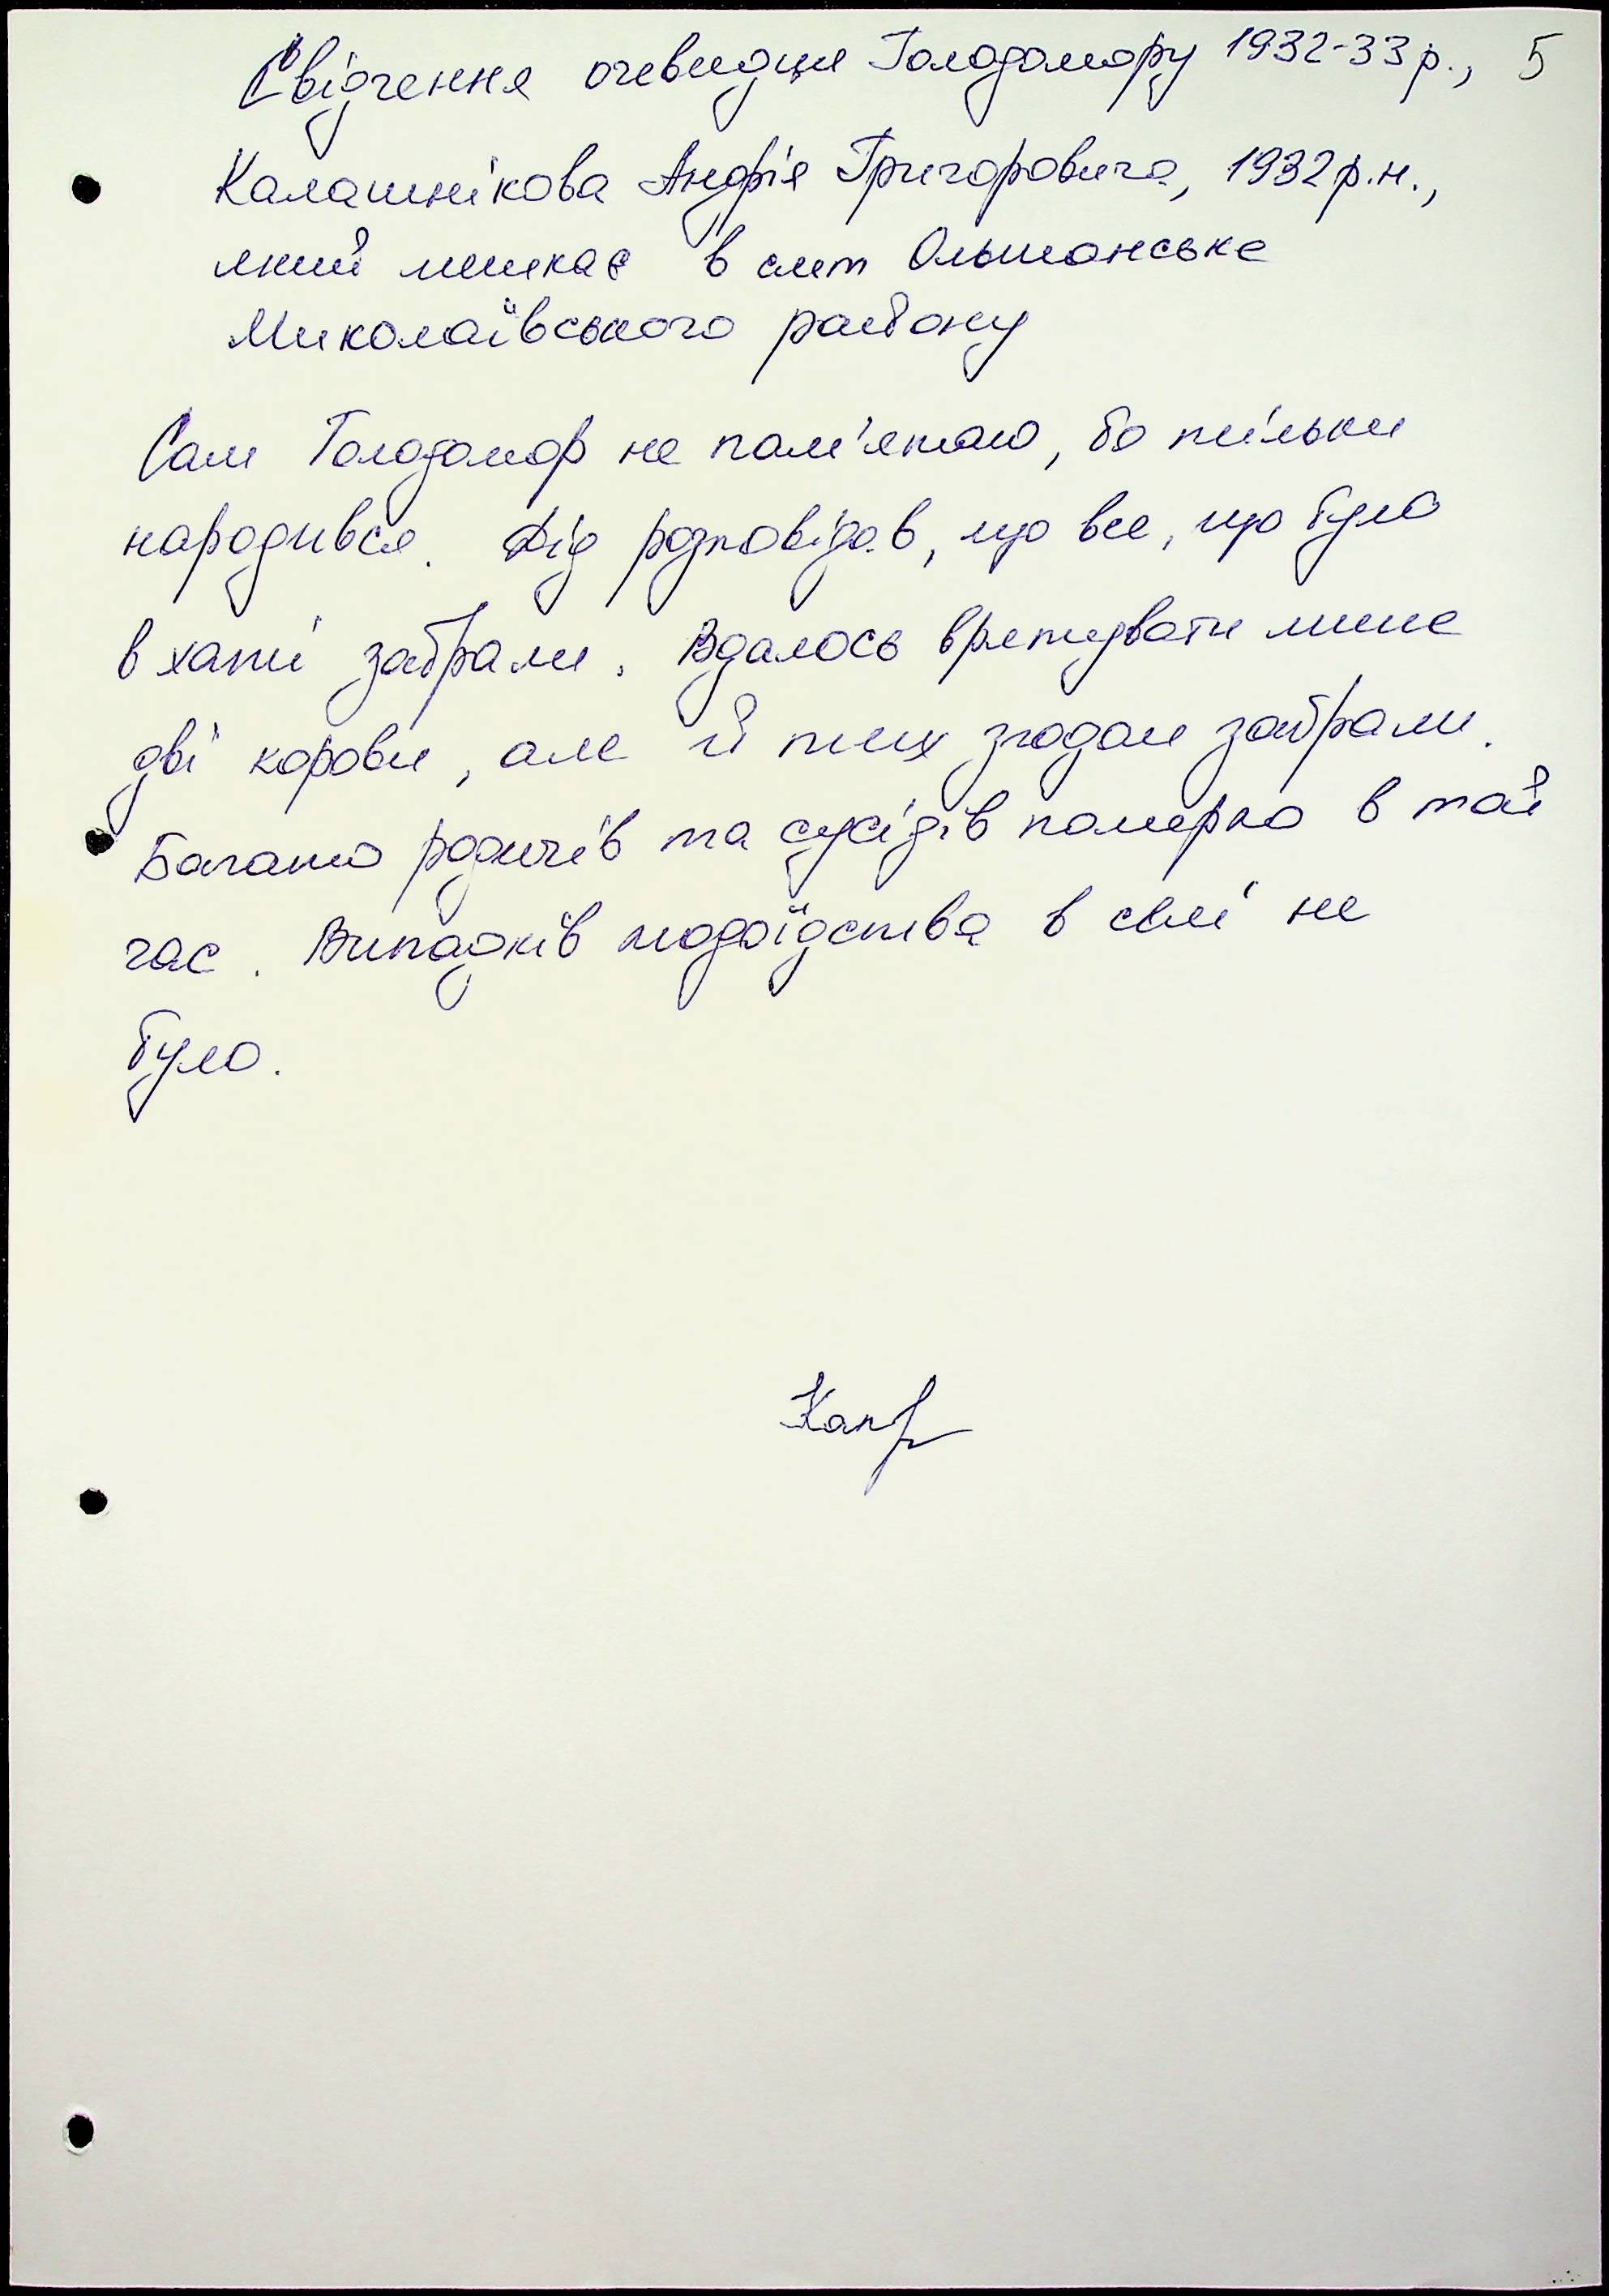 Свідчення очевидця Голодомору 1932-33 р., 5
Калашнікова Андрія Григоровича, 1932 р.н.,
який мешкає в смт Ольшанське
Миколаївського району
Сам Голодомор не пам'ятаю, бо тільки
народився. Дід розповідав, що все, що було
в хаті забрали. Вдалось врятувати лише
дві корови, але й тих згодом забрали.
Багато родичів та сусідів померло в той
час. Випадків людоїдства в селі не
було.